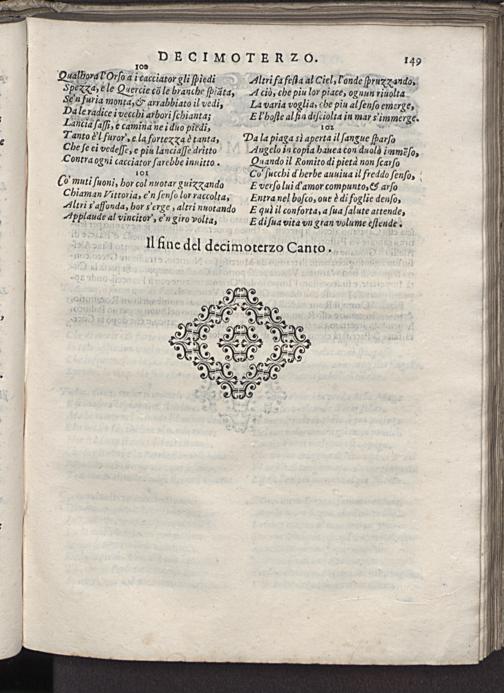 DECIMOTERZO. 149
100
Qualhora l'Orso a i cacciator gli spiedi
Spezza, e le Quercie cō le branche spiāta,
Se'n furia monta, & arrabbiato il vedi,
Da le radice i vecchi arbori schianta;
Lancia sassi, e camina ne i duo piedi,
Tanto è'l furor', e la fortezza è tanta,
Che se ei vedesse, e piu lanciasse dritto
Contra ogni cacciator sarebbe inuitto.
101
Co' muti suoni, hor col nuotar guizzando
Chiaman Vittoria, e'n senso lor raccolta,
Altri s'affonda, hor s'erge, altri nuotando
Applaude al vincitor', e'n giro volta,
Altri fa festa al Ciel, l'onde spruzzando.
A ciò, che piu lor piace, ognun riuolta
La varia voglia, che piu al senso emerge,
E l'hoste al fin disciolta in mar s'immerge.
102
Da la piaga sì aperta il sangue sparso
Angelo in copia hauea con duolo immēso,
Quando il Romito di pietà non scarso
Co' succhi d'herbe auuiua il freddo senso,
E verso lui d'amor compunto, & arso
Entra nel bosco, oue è di foglie denso,
E quì il conforta, a sua salute attende,
E di sua vita vn gran volume estende.
Il fine del decimoterzo Canto.